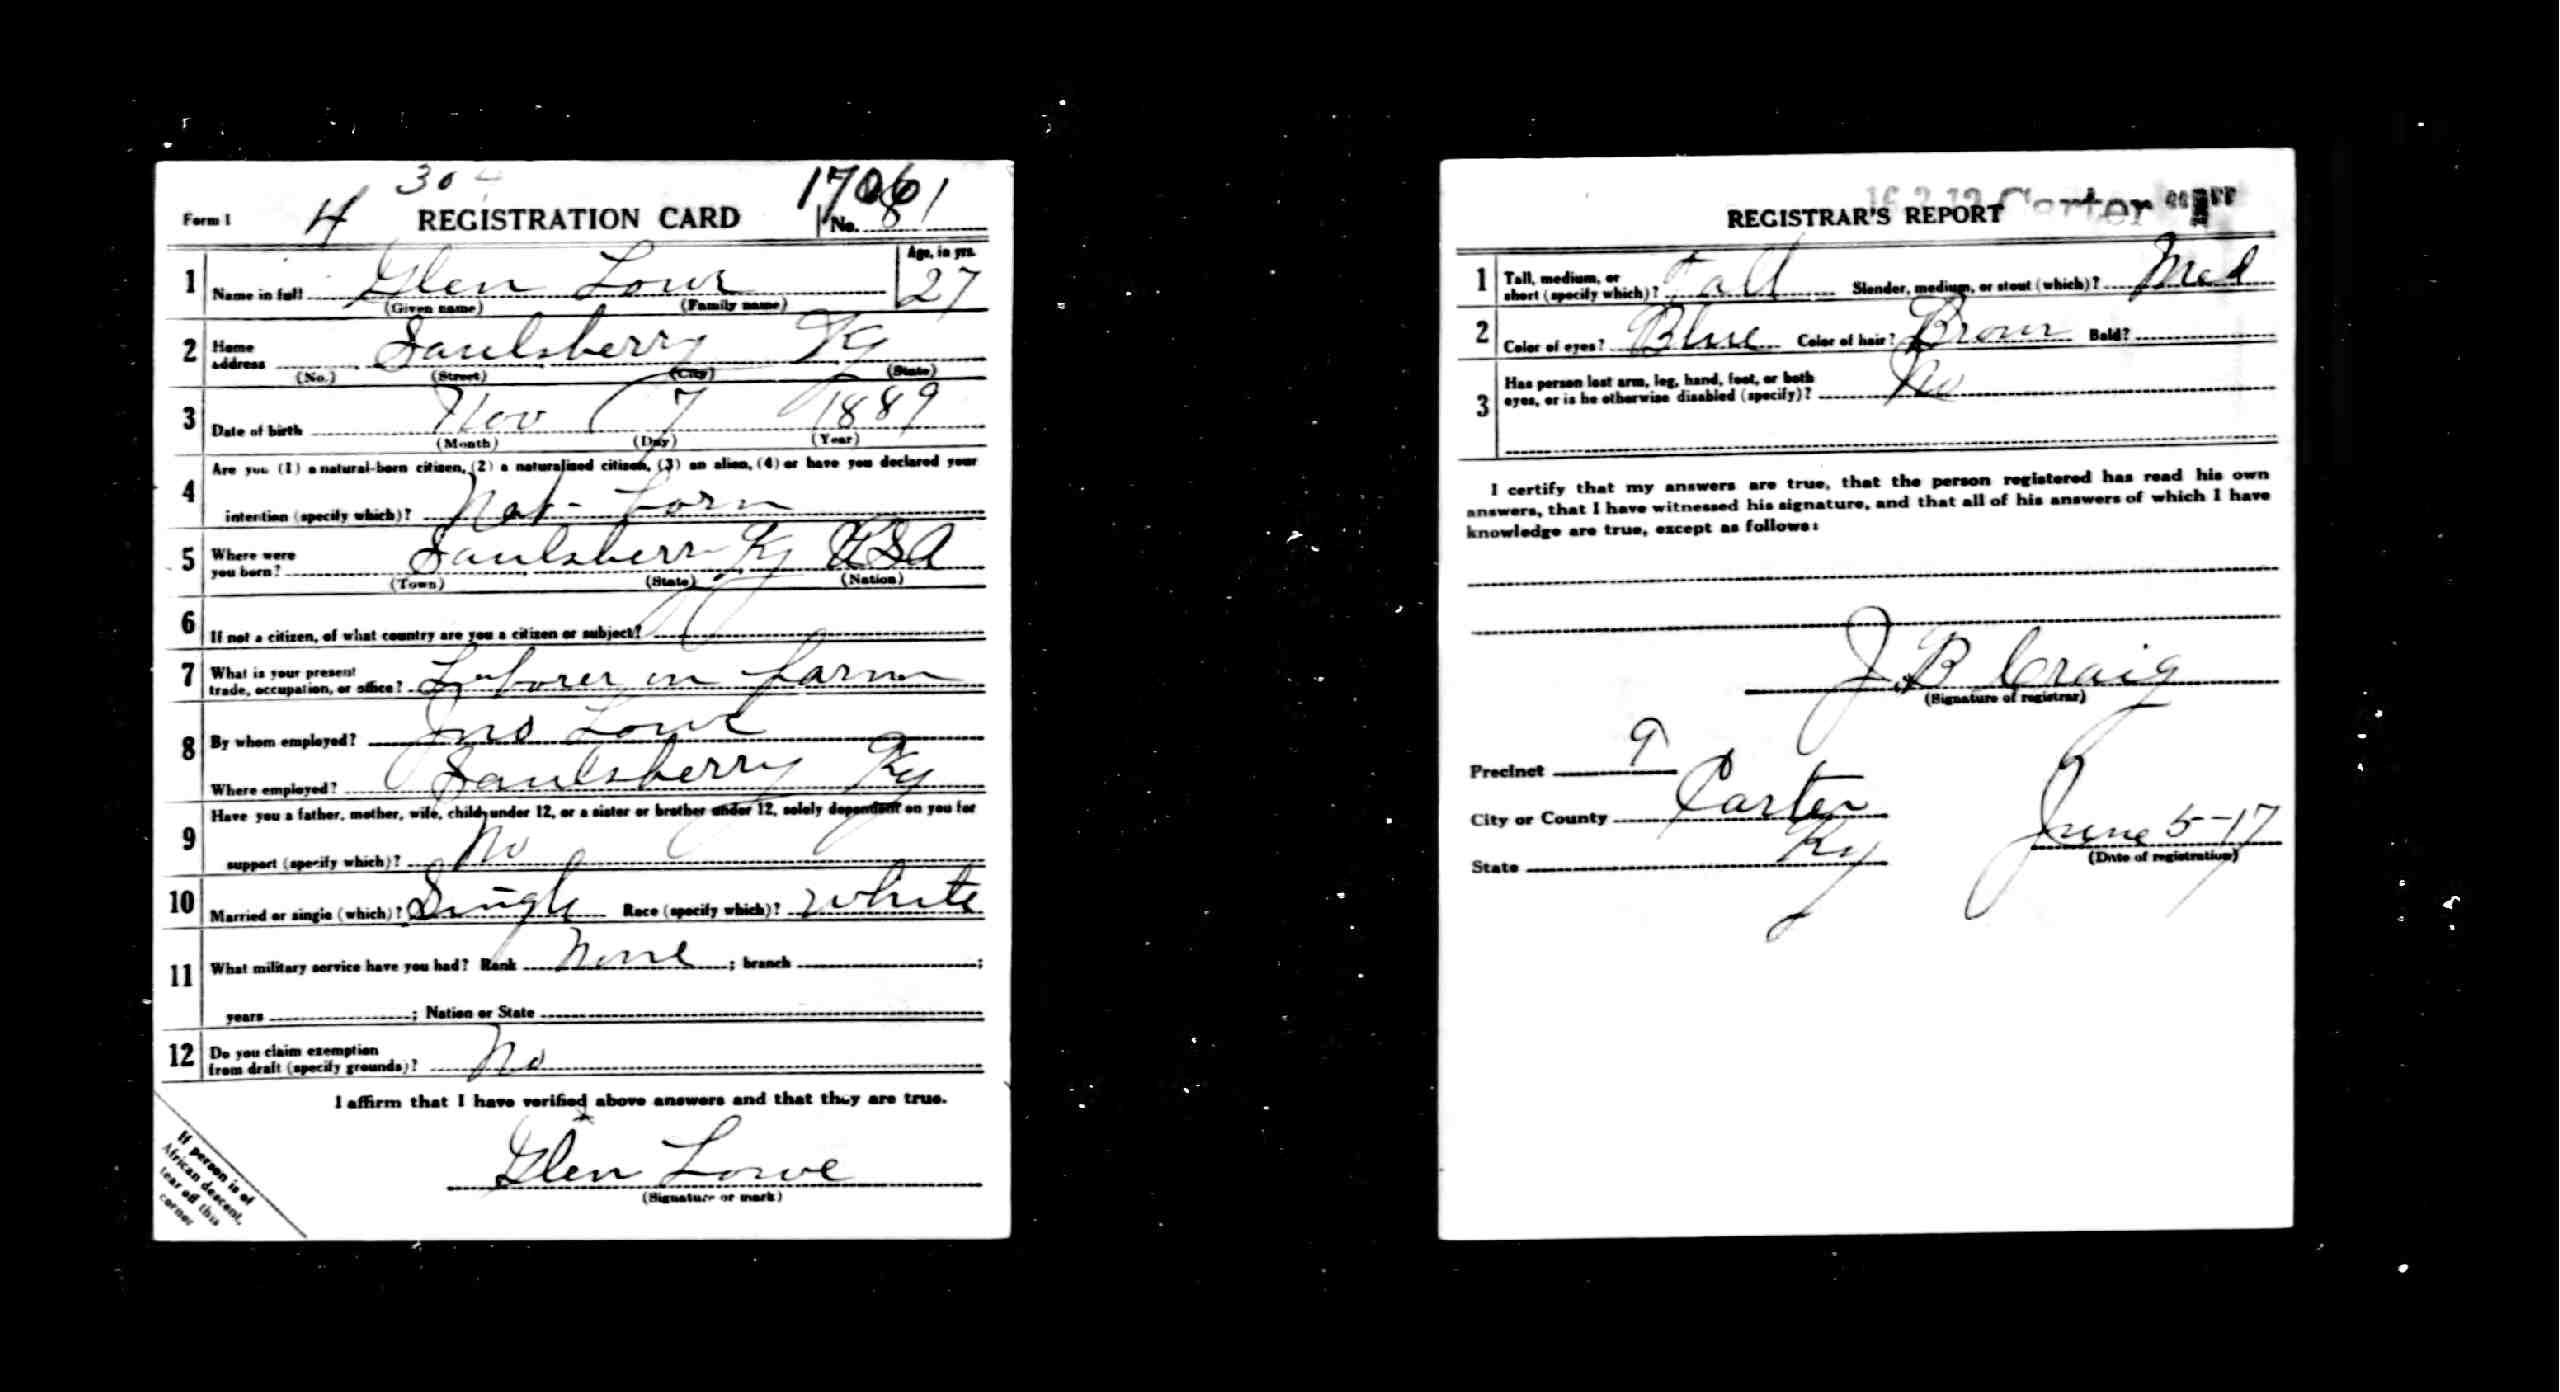 304
1706
Form 1 4 REGISTRATION CARD No. 81
1 Name in full Glen Lowe Age, in yrs. 27
(Given name) (Family name)
2 Home address Saulsberry Ky
(No.) (Street) (City) (State)
3 Date of birth Nov 7 1889
(Month) (Day) (Year)
4 Are you (1) a natural-born citizen, (2) a naturalized citizen, (3) an alien, (4) or have you declared your
intention (specify which)? Nat- born
5 Where were you born? Saulsberry Ky USA
(Town) (State) (Nation)
6 If not a citizen, of what country are you a citizen or subject?
7 What is your present trade, occupation, or office? Laborer on farm
8 By whom employed? Jno Lowe
Where employed? Saulsberry Ky
9 Have you a father, mother, wife, child under 12, or a sister or brother under 12, solely dependent on you for
support (specify which)? No
10 Married or single (which)? Single Race (specify which)? White
11 What military service have you had? Rank None ; branch ;
years ; Nation or State
12 Do you claim exemption
from draft (specify grounds)? No
I affirm that I have verified above answers and that they are true.
Glen Lowe
(Signature or mark)
If person is of
African descent,
tear off this
corner
REGISTRAR'S REPORT Carter
1 Tall, medium, or
short (specify which)? Tall Slender, medium, or stout (which)? Med
2 Color of eyes? Blue Color of hair? Brown Bald?
3 Has person lost arm, leg, hand, foot, or both
eyes, or is he otherwise disabled (specify)? No
I certify that my answers are true, that the person registered has read his own
answers, that I have witnessed his signature, and that all of his answers of which I have
knowledge are true, except as follows:
J. B Craig
(Signature of registrar)
Precinct 9
City or County Carter
State Ky
June 5-17
(Date of registration)